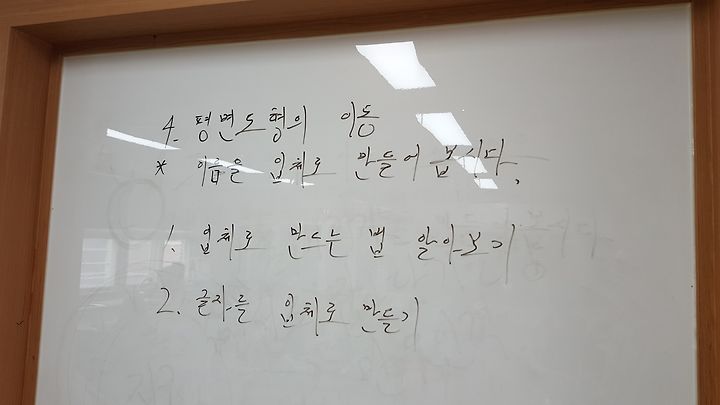 4.평면도형의 이동
* 이름을 입체로 만들어 봅시다.
1. 입체로 만드는 법 알아보기
2. 글자를 입체로 만들기